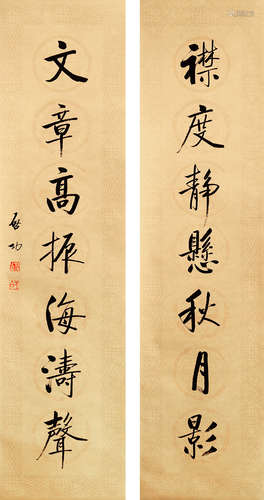 襟度静懸秋月影
文章高振海濤聲
啟功